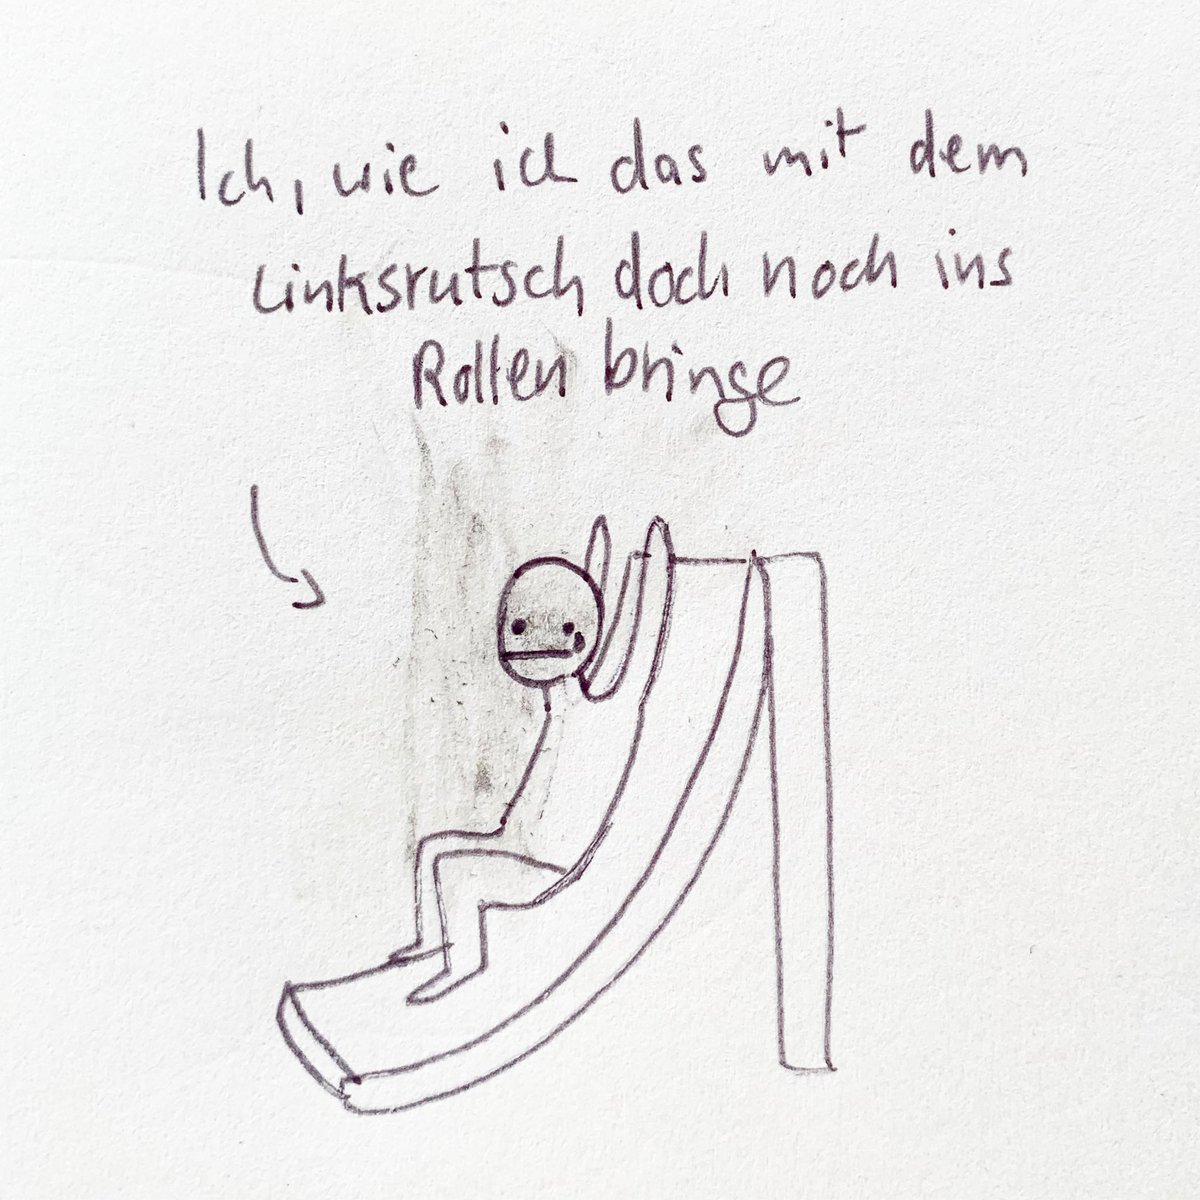 Ich, wie ich das mit dem
Linksrutsch doch noch ins
Rollen bringe